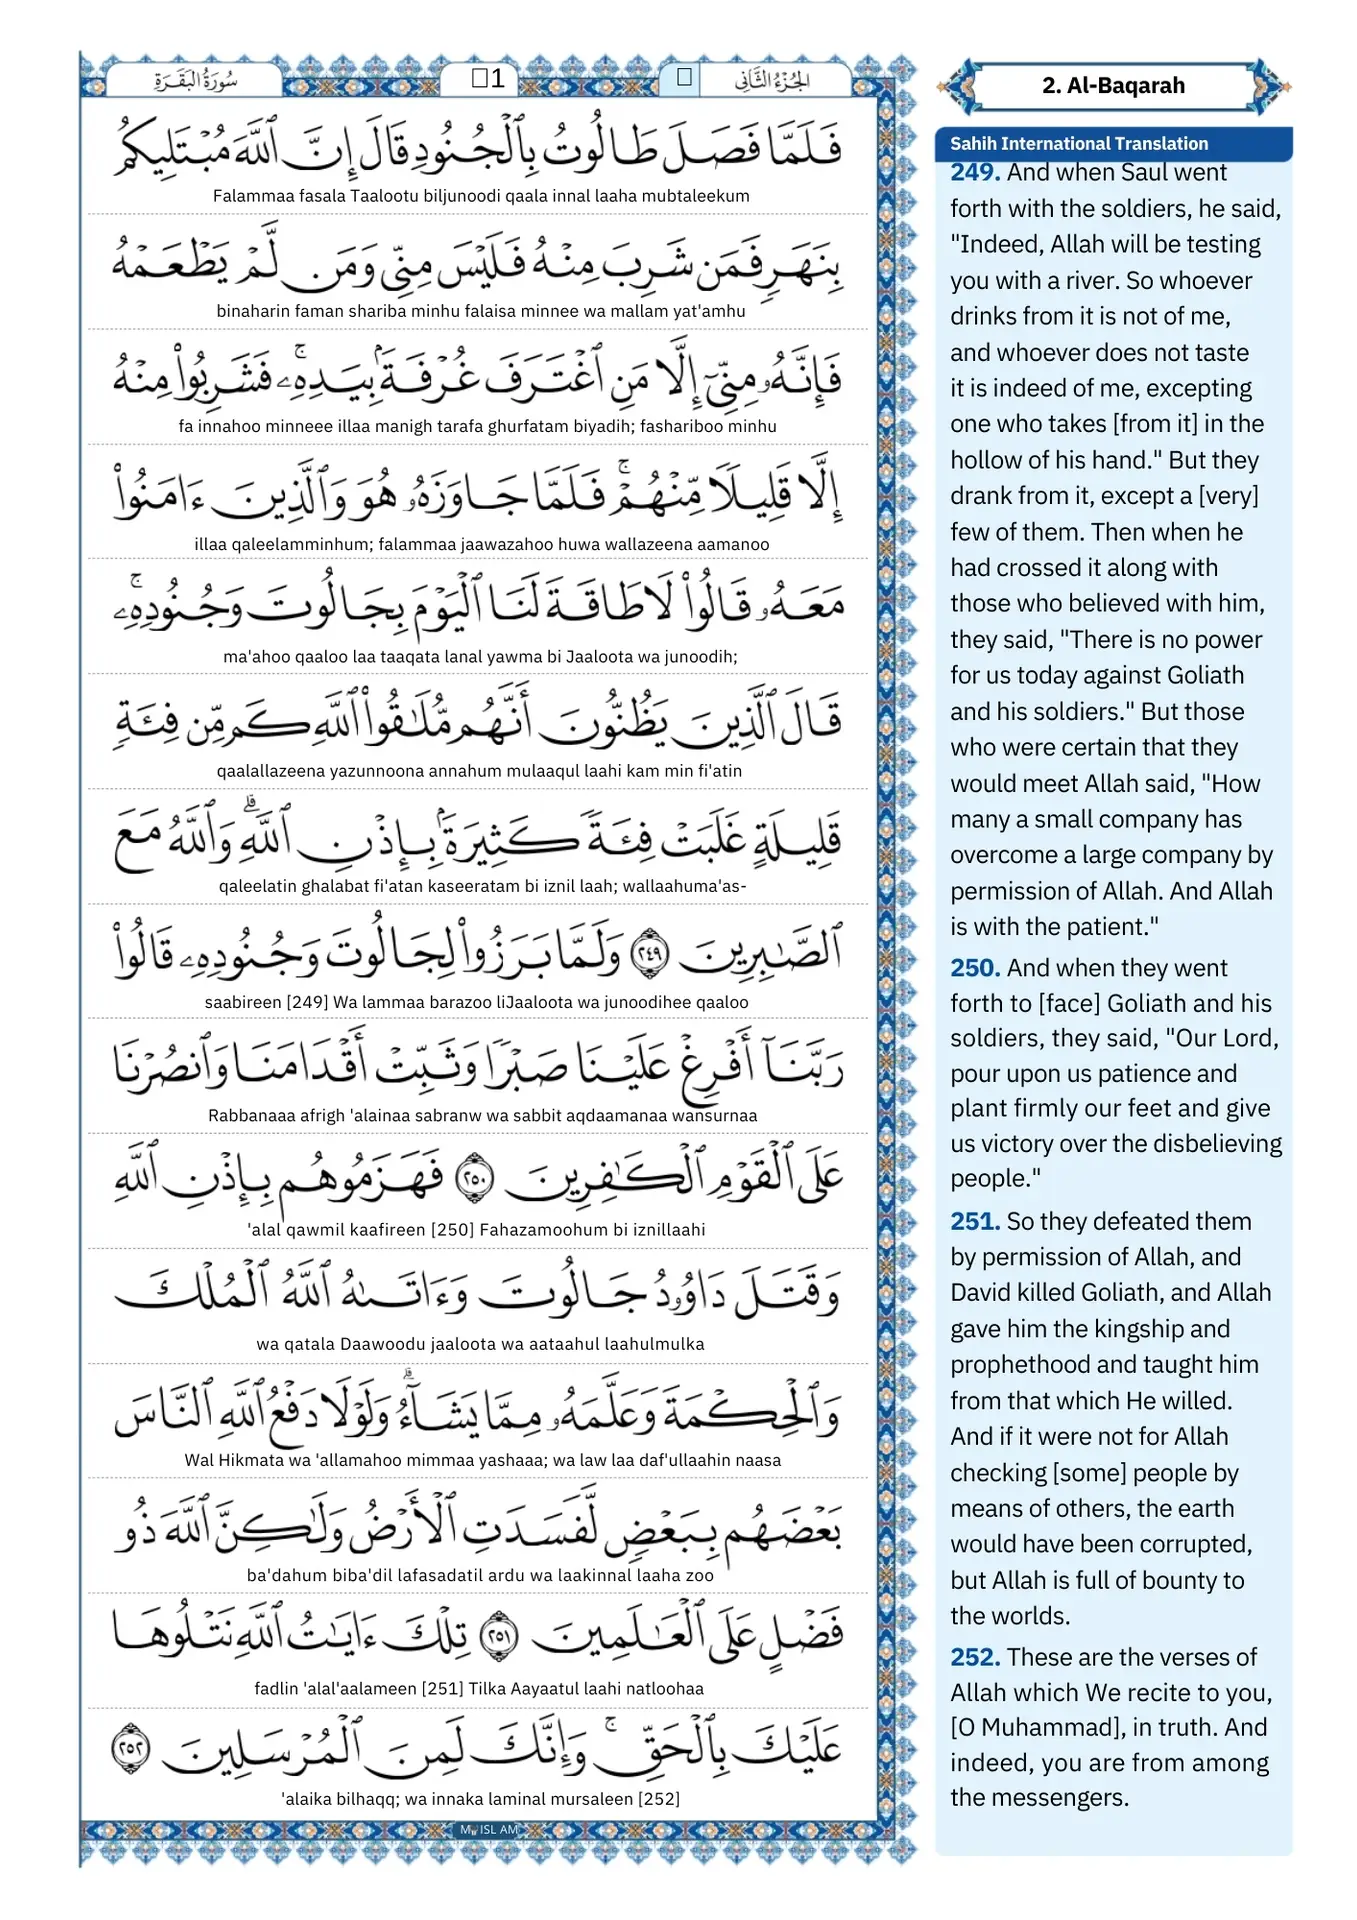 سُورَةُ البَقَرَةِ
1
الجُزْءُ الثَّانِي
فَلَمَّا فَصَلَ طَالُوتُ بِٱلْجُنُودِ قَالَ إِنَّ ٱللَّهَ مُبْتَلِيكُم
Falammaa fasala Taalootu biljunoodi qaala innal laaha mubtaleekum
بِنَهَرٍ فَمَن شَرِبَ مِنْهُ فَلَيْسَ مِنِّى وَمَن لَّمْ يَطْعَمْهُ
binaharin faman shariba minhu falaisa minnee wa mallam yat'amhu
فَإِنَّهُۥ مِنِّىٓ إِلَّا مَنِ ٱغْتَرَفَ غُرْفَةًۢ بِيَدِهِۦ ۚ فَشَرِبُوا۟ مِنْهُ
fa innahoo minneee illaa manigh tarafa ghurfatam biyadih; fashariboo minhu
إِلَّا قَلِيلًا مِّنْهُمْ ۚ فَلَمَّا جَاوَزَهُۥ هُوَ وَٱلَّذِينَ ءَامَنُوا۟
illaa qaleelamminhum; falammaa jaawazahoo huwa wallazeena aamanoo
مَعَهُۥ قَالُوا۟ لَا طَاقَةَ لَنَا ٱلْيَوْمَ بِجَالُوتَ وَجُنُودِهِۦ ۚ
ma'ahoo qaaloo laa taaqata lanal yawma bi Jaaloota wa junoodih;
قَالَ ٱلَّذِينَ يَظُنُّونَ أَنَّهُم مُّلَٰقُوا۟ ٱللَّهِ كَم مِّن فِئَةٍ
qaalallazeena yazunnoona annahum mulaaqul laahi kam min fi'atin
قَلِيلَةٍ غَلَبَتْ فِئَةً كَثِيرَةًۢ بِإِذْنِ ٱللَّهِ ۗ وَٱللَّهُ مَعَ
qaleelatin ghalabat fi'atan kaseeratam bi iznil laah; wallaahuma'as-
ٱلصَّٰبِرِينَ ٢٤٩ وَلَمَّا بَرَزُوا۟ لِجَالُوتَ وَجُنُودِهِۦ قَالُوا۟
saabireen [249] Wa lammaa barazoo liJaaloota wa junoodihee qaaloo
رَبَّنَآ أَفْرِغْ عَلَيْنَا صَبْرًا وَثَبِّتْ أَقْدَامَنَا وَٱنصُرْنَا
Rabbanaaa afrigh 'alainaa sabranw wa sabbit aqdaamanaa wansurnaa
عَلَى ٱلْقَوْمِ ٱلْكَٰفِرِينَ ٢٥٠ فَهَزَمُوهُم بِإِذْنِ ٱللَّهِ
'alal qawmil kaafireen [250] Fahazamoohum bi iznillaahi
وَقَتَلَ دَاوُۥدُ جَالُوتَ وَءَاتَىٰهُ ٱللَّهُ ٱلْمُلْكَ
wa qatala Daawoodu jaaloota wa aataahul laahulmulka
وَٱلْحِكْمَةَ وَعَلَّمَهُۥ مِمَّا يَشَآءُ ۗ وَلَوْلَا دَفْعُ ٱللَّهِ ٱلنَّاسَ
Wal Hikmata wa 'allamahoo mimmaa yashaaa; wa law laa daf'ullaahin naasa
بَعْضَهُم بِبَعْضٍ لَّفَسَدَتِ ٱلْأَرْضُ وَلَٰكِنَّ ٱللَّهَ ذُو
ba'dahum biba'dil lafasadatil ardu wa laakinnal laaha zoo
فَضْلٍ عَلَى ٱلْعَٰلَمِينَ ٢٥١ تِلْكَ ءَايَٰتُ ٱللَّهِ نَتْلُوهَا
fadlin 'alal'aalameen [251] Tilka Aayaatul laahi natloohaa
عَلَيْكَ بِٱلْحَقِّ ۚ وَإِنَّكَ لَمِنَ ٱلْمُرْسَلِينَ ٢٥٢
'alaika bilhaqq; wa innaka laminal mursaleen [252]
2. Al-Baqarah
Sahih International Translation
249. And when Saul went
forth with the soldiers, he said,
"Indeed, Allah will be testing
you with a river. So whoever
drinks from it is not of me,
and whoever does not taste
it is indeed of me, excepting
one who takes [from it] in the
hollow of his hand." But they
drank from it, except a [very]
few of them. Then when he
had crossed it along with
those who believed with him,
they said, "There is no power
for us today against Goliath
and his soldiers." But those
who were certain that they
would meet Allah said, "How
many a small company has
overcome a large company by
permission of Allah. And Allah
is with the patient."
250. And when they went
forth to [face] Goliath and his
soldiers, they said, "Our Lord,
pour upon us patience and
plant firmly our feet and give
us victory over the disbelieving
people."
251. So they defeated them
by permission of Allah, and
David killed Goliath, and Allah
gave him the kingship and
prophethood and taught him
from that which He willed.
And if it were not for Allah
checking [some] people by
means of others, the earth
would have been corrupted,
but Allah is full of bounty to
the worlds.
252. These are the verses of
Allah which We recite to you,
[O Muhammad], in truth. And
indeed, you are from among
the messengers.